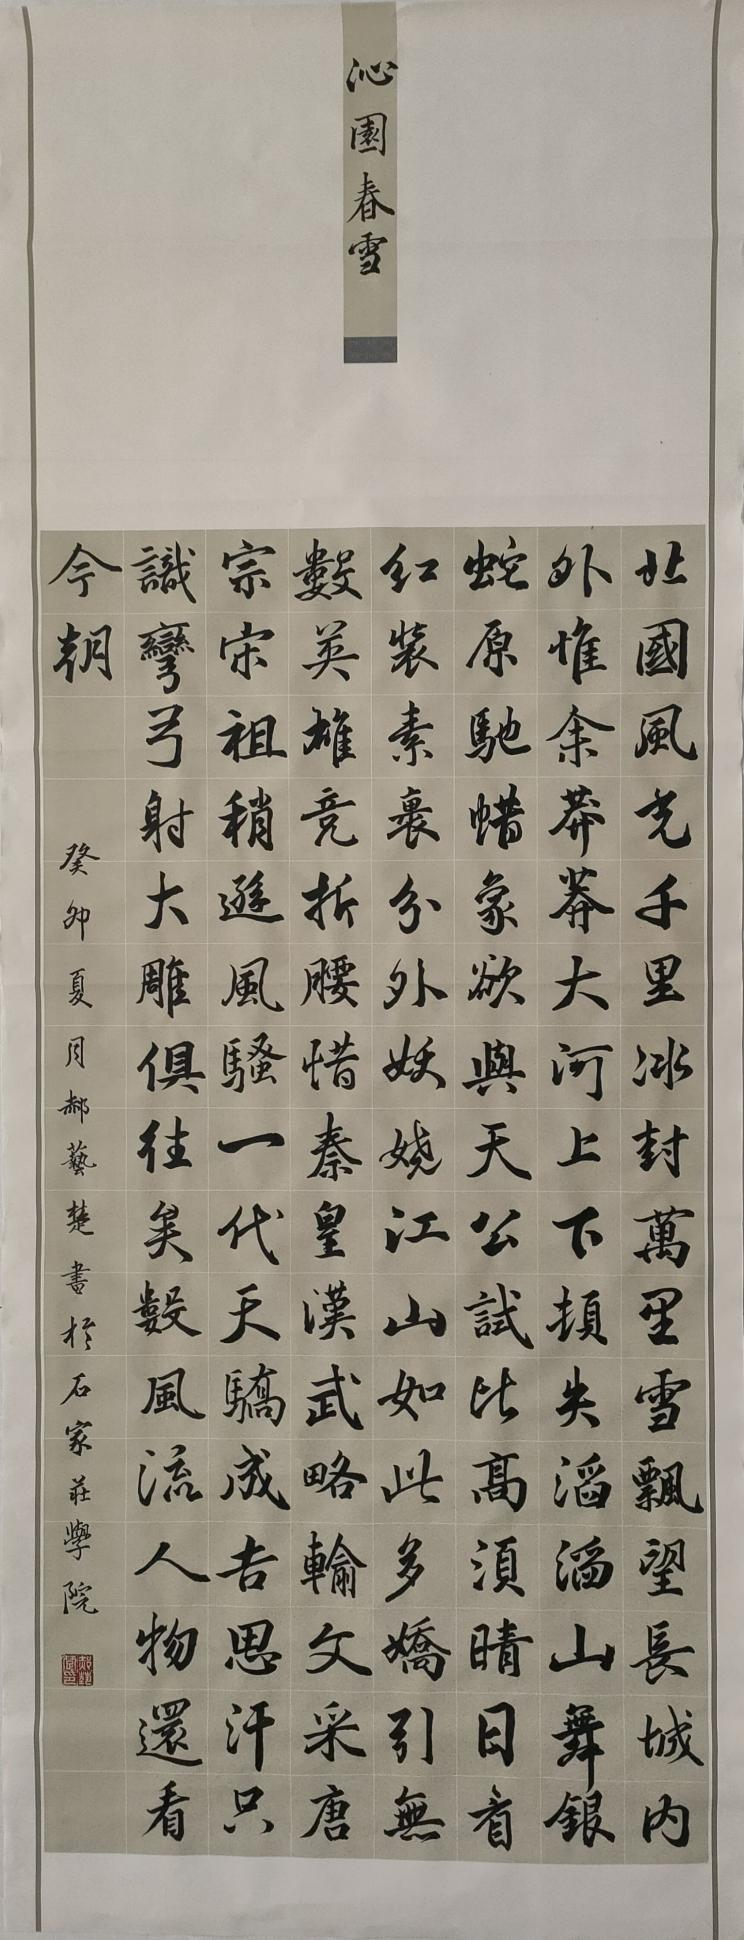 沁園春雪
北國風光千里冰封萬里雪飄望長城内
外惟余莽莽大河上下頓失滔滔山舞銀
蛇原馳蜡象欲與天公試比高須晴日看
紅裝素裹分外妖娆江山如此多嬌引無
數英雄竞折腰惜秦皇漢武略輸文采唐
宗宋祖稍遜風騷一代天驕成吉思汗只
識彎弓射大雕俱往矣數風流人物還看
今朝
癸卯夏月郝藝楚書於石家莊學院